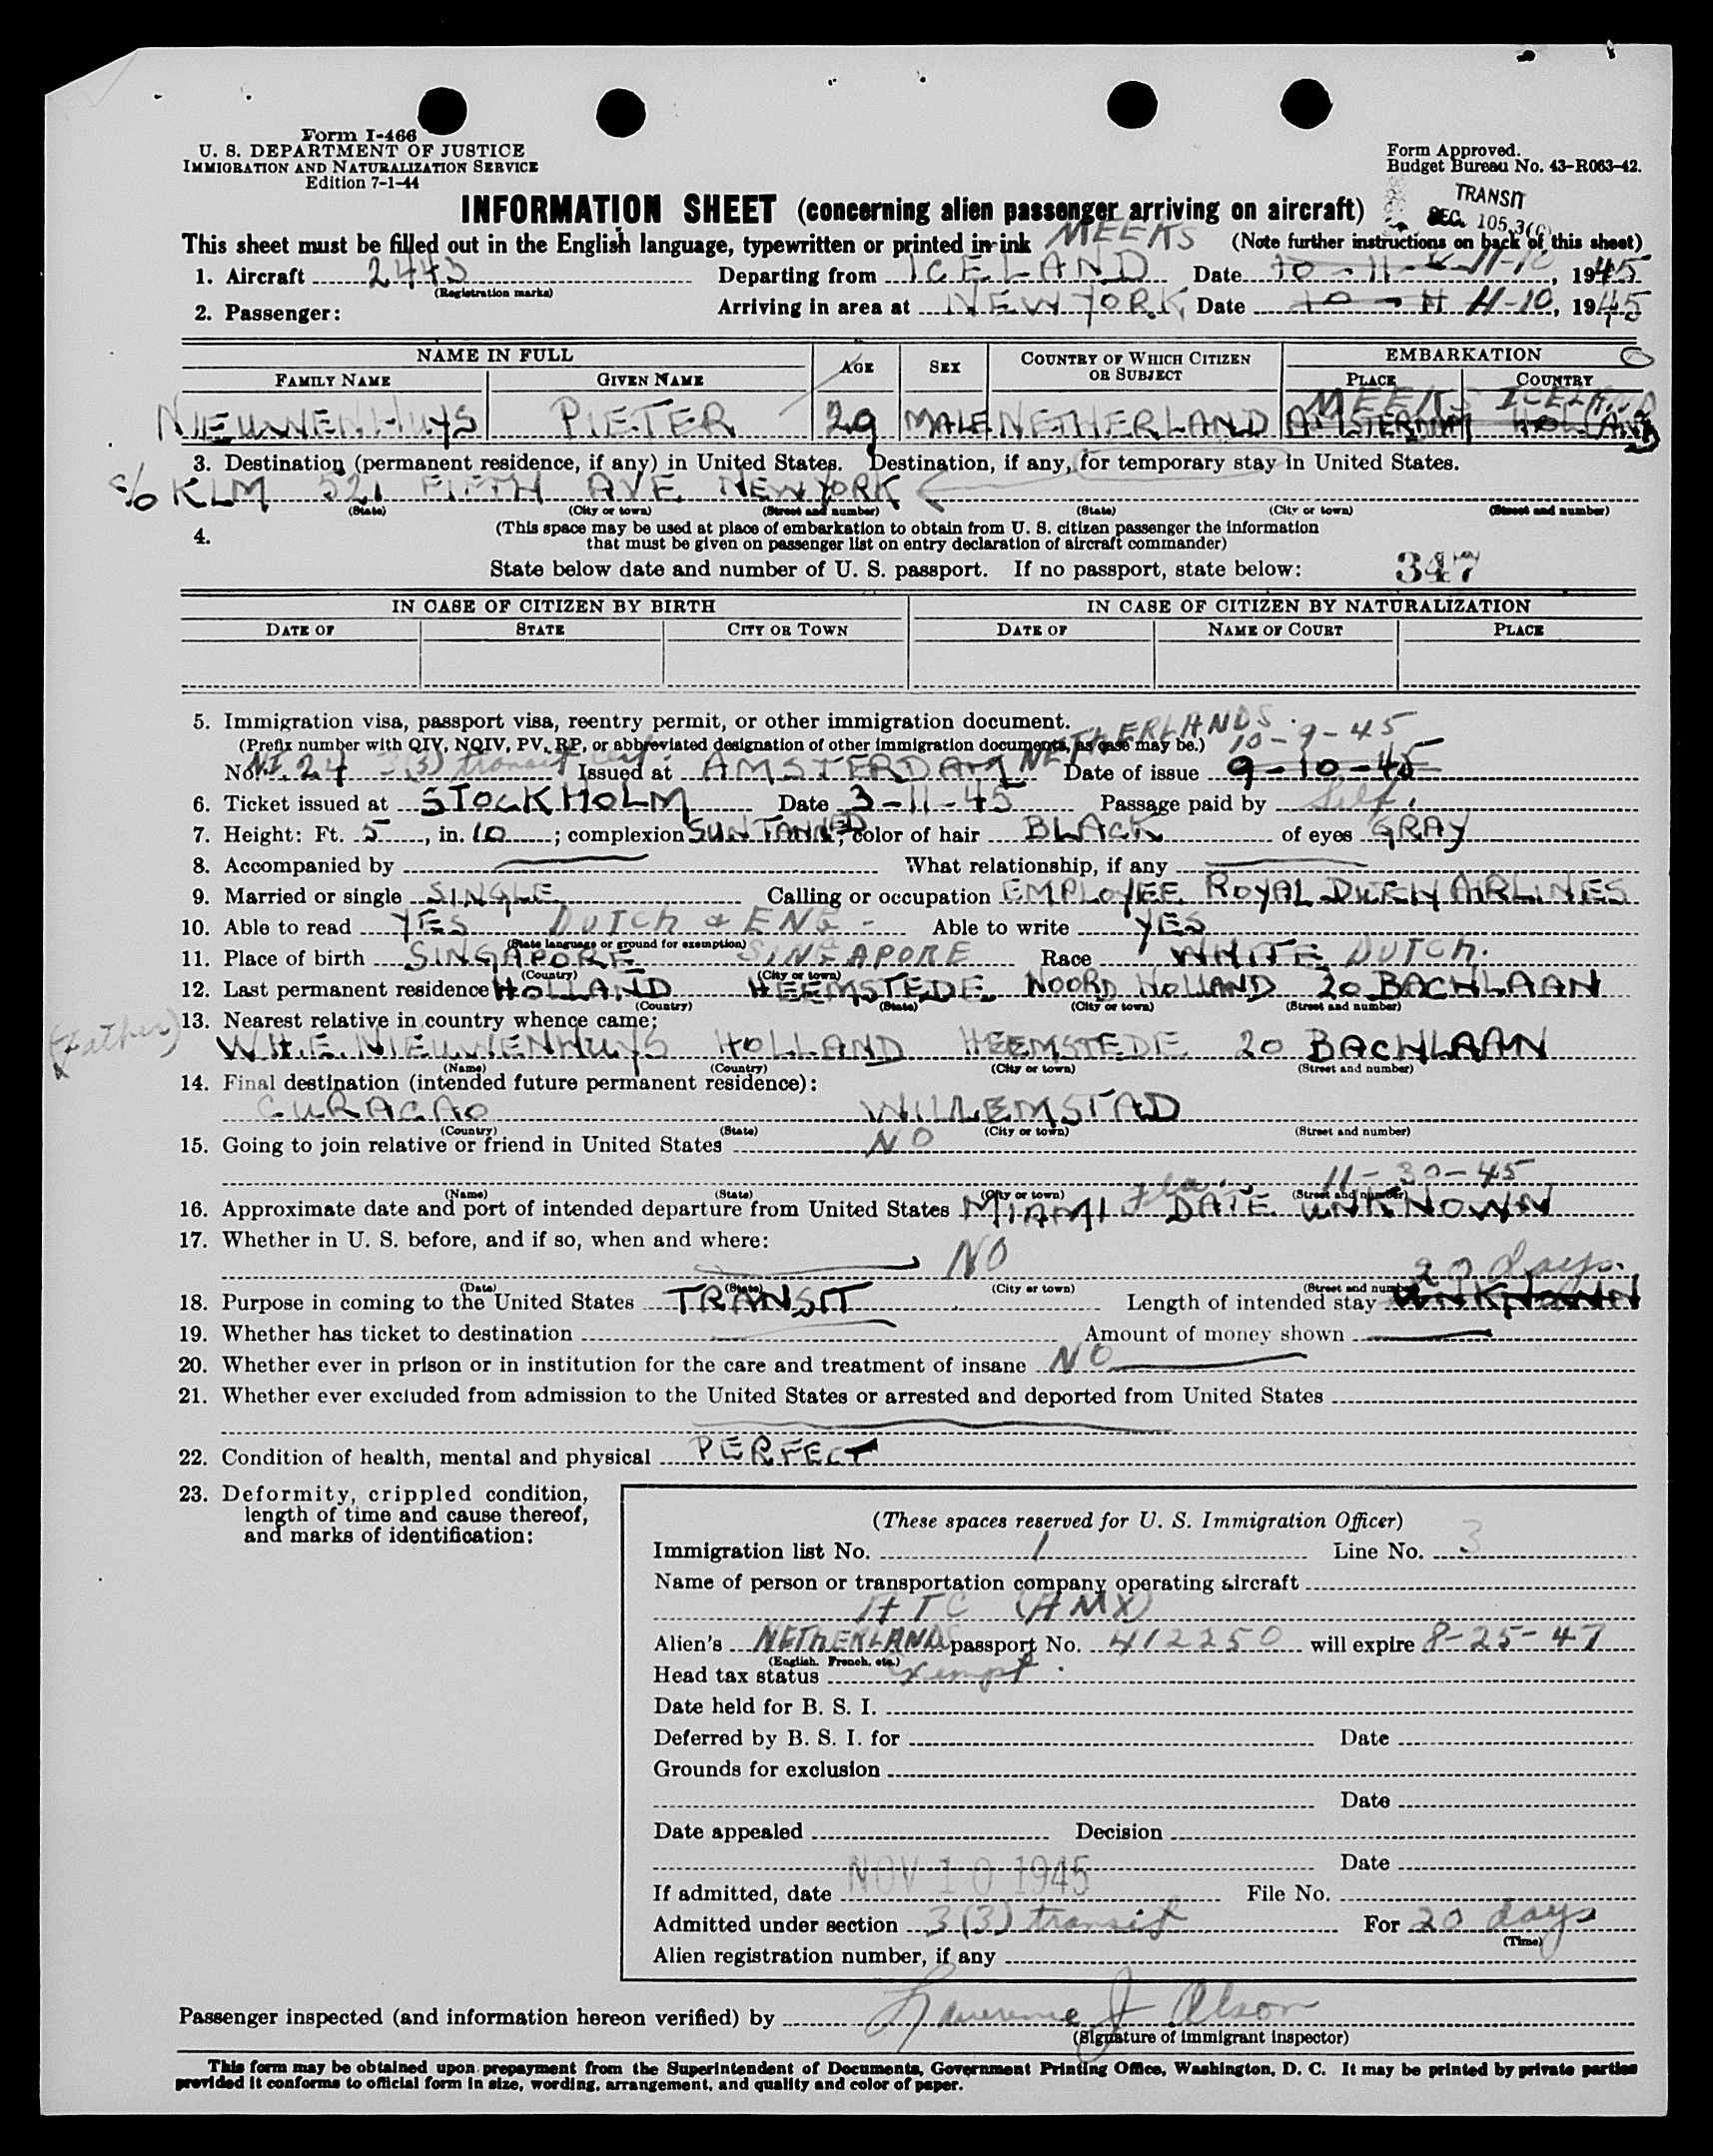 Form I-466
U. S. DEPARTMENT OF JUSTICE
IMMIGRATION AND NATURALIZATION SERVICE
Edition 7-1-44
Form Approved.
Budget Bureau No. 43-R063-42.
TRANSIT
SEC. 105.3(c)
INFORMATION SHEET (concerning alien passenger arriving on aircraft)
This sheet must be filled out in the English language, typewritten or printed in ink MEEKS (Note further instructions on back of this sheet)
1. Aircraft 2443 Departing from ICELAND Date 10-11- 11-10, 1945
(Registration marks)
2. Passenger: Arriving in area at NEW YORK Date 10-11 11-10, 1945
NAME IN FULL AGE SEX COUNTRY OF WHICH CITIZEN OR SUBJECT EMBARKATION
FAMILY NAME GIVEN NAME PLACE COUNTRY
MEEKS ICELAND
NIEUWENHUYS PIETER 29 MALE NETHERLAND AMSTERDAM HOLLAND
3. Destination (permanent residence, if any) in United States. Destination, if any, for temporary stay in United States.
c/o KLM 521 FIFTH AVE NEW YORK
(State) (City or town) (Street and number) (State) (City or town) (Street and number)
4. (This space may be used at place of embarkation to obtain from U. S. citizen passenger the information
that must be given on passenger list on entry declaration of aircraft commander)
State below date and number of U. S. passport. If no passport, state below: 347
IN CASE OF CITIZEN BY BIRTH IN CASE OF CITIZEN BY NATURALIZATION
DATE OF STATE CITY OR TOWN DATE OF NAME OF COURT PLACE
5. Immigration visa, passport visa, reentry permit, or other immigration document.
(Prefix number with QIV, NQIV, PV, RP, or abbreviated designation of other immigration documents, as case may be.) NETHERLANDS. 10-9-45
No. 24 3(3) transit cert. Issued at AMSTERDAM Date of issue 9-10-45
6. Ticket issued at STOCKHOLM Date 3-11-45 Passage paid by Self.
7. Height: Ft. 5, in. 10; complexion SUNTANNED, color of hair BLACK of eyes GRAY
8. Accompanied by What relationship, if any
9. Married or single SINGLE Calling or occupation EMPLOYEE ROYAL DUTCH AIRLINES
10. Able to read YES DUTCH & ENG - Able to write YES
(State language or ground for exemption)
11. Place of birth SINGAPORE SINGAPORE Race WHITE DUTCH.
(Country) (City or town)
12. Last permanent residence HOLLAND HEEMSTEDE NOORD HOLLAND 20 BACHLAAN
(Country) (State) (City or town) (Street and number)
13. Nearest relative in country whence came:
(Father) W.H.E. NIEUWENHUYS HOLLAND HEEMSTEDE 20 BACHLAAN
(Name) (Country) (City or town) (Street and number)
14. Final destination (intended future permanent residence):
CURACAO WILLEMSTAD
(Country) (State) (City or town) (Street and number)
15. Going to join relative or friend in United States NO
11-30-45
(Name) (State) (City or town) (Street and number)
16. Approximate date and port of intended departure from United States MIAMI Fla. DATE UNKNOWN
17. Whether in U. S. before, and if so, when and where:
NO 20 days.
(Date) (State) (City or town) (Street and number)
18. Purpose in coming to the United States TRANSIT Length of intended stay UNKNOWN
19. Whether has ticket to destination Amount of money shown
20. Whether ever in prison or in institution for the care and treatment of insane NO
21. Whether ever excluded from admission to the United States or arrested and deported from United States
22. Condition of health, mental and physical PERFECT
23. Deformity, crippled condition,
length of time and cause thereof,
and marks of identification:
(These spaces reserved for U. S. Immigration Officer)
Immigration list No. 1 Line No. 3
Name of person or transportation company operating aircraft
ATC (AMX)
Alien's NETHERLANDS passport No. 412250 will expire 8-25-47
(English, French, etc.)
Head tax status exempt.
Date held for B. S. I.
Deferred by B. S. I. for Date
Grounds for exclusion
Date
Date appealed Decision
Date
If admitted, date NOV 10 1945 File No.
Admitted under section 3(3) transit For 20 days
(Time)
Alien registration number, if any
Passenger inspected (and information hereon verified) by Lawrence J Olson
(Signature of immigrant inspector)
This form may be obtained upon prepayment from the Superintendent of Documents, Government Printing Office, Washington, D. C. It may be printed by private parties
provided it conforms to official form in size, wording, arrangement, and quality and color of paper.